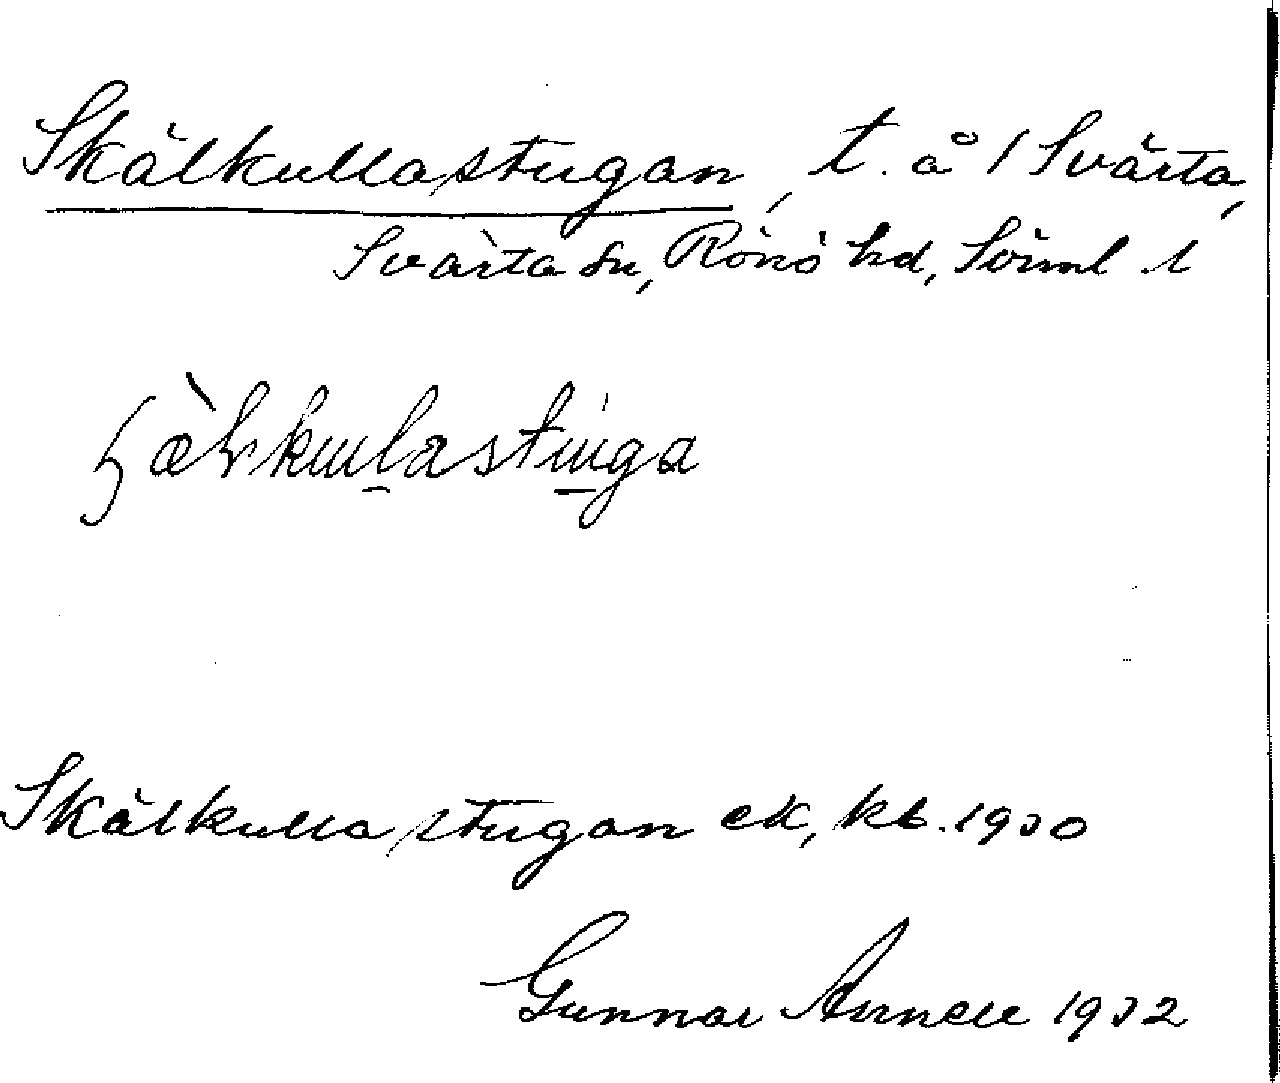 Skälkullastugan, t. å 1 Svärta,
Svärta sn, Rönö hd, Sörml l
Skälkullastugan ek, kb. 1930
Gunnar Annell 1932